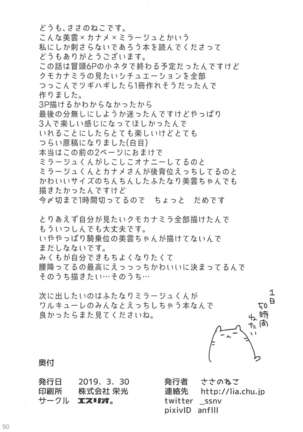 どうも、ささのねこです。
こんな美雲×カナメ×ミラージュとかいう
私にしか刺さらないであろう本を読んでくださって
どうもありがとうございます。
この話は冒頭6Pの小ネタで終わる予定だったんですけど
クモカナミラの見たいシチュエーションを全部
つっこんでツギハギしたら1冊作れそうだったんで
作りました。
3P描けるかわからなかったから
最後の分無しにしようか迷ったんですけどやっぱり
3人で楽しい感じになってほしかったんで
いれることにしたらとても楽しいけどとても
つらい原稿になりました(白目)
本当はこの前の2ページにおまけで
ミラージュくんがしこしこオナニーしてるのと
ミラージュくんとカナメさんが後背位えっちしてるのと
かわいいサイズのちんちんしたふたなり美雲ちゃんでも
描きたかったんですけど
今〆切まで1時間切ってるので ちょっと だめです
とりあえず自分が見たいクモカナミラ全部描けたんで
もういつしんでも大丈夫です。
いややっぱり騎乗位の美雲ちゃんが描けてないんで
まだしなないです。
みくもが自分できもちよくなりたくて
腰降ってるの最高にえっっっちかわいいに決まってるんで
そのうち描きたい…そのうち…
次に出したいのはふたなりミラージュくんが
ワルキューレのみんなとえっちしちゃう本なんで
良かったらまた見てくださいね。
1日
50時間
ねたい
奥付
発行日 2019. 3. 30
印刷所 株式会社 栄光
サークル エスリオ。
発行者 ささのねこ
連絡先 http://lia.chu.jp
twitter _ssnv
pixivID anflll
50